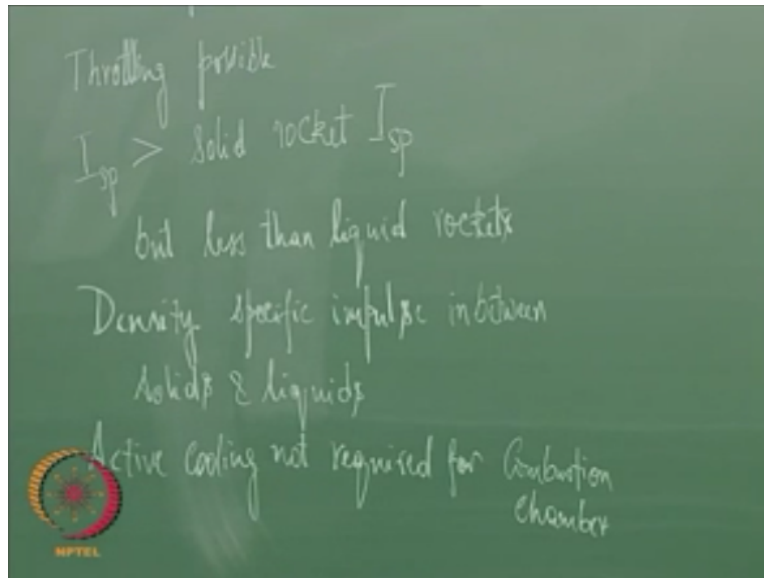 Throttling possible
I_sp > Solid rocket I_sp
but less than liquid rockets
Density specific impulse inbetween
solids & liquids
Active cooling not required for Combustion
chamber
NPTEL